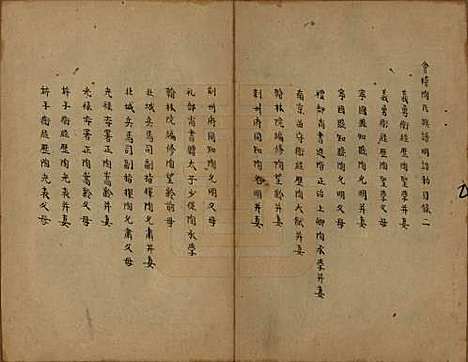 會稽陶氏族譜明誥勑目錄二
義勇衛經歷陶望學并妻
義勇衛經歷陶望學父母
寧國縣知縣陶允明并妻
寧國縣知縣陶允明父母
禮部尚書追贈正治上卿陶承學并妻
南京留守衛經歷陶大猷并妻
翰林院編修陶望齡并妻
荆州府同知陶允明并妻
荆州府同知陶允明父母
礼部尚書贈太子少保陶承學
翰林院編修陶望齡前母
北城兵馬司副指揮陶允肅父母
北城兵馬司副指揮陶允肅并妻
光祿寺署正陶嵩齡并妻
光祿寺署正陶嵩齡父母
評子衛經歷陶允表并妻
評子衛經歷陶允表父母